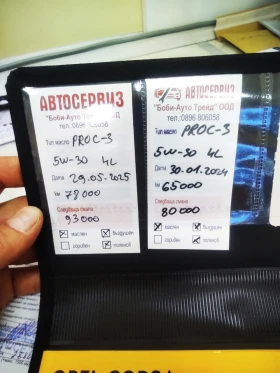 АВТОСЕРВИЗ
"Боби-Ауто Трейд" ООД
тел.:0896 806058
Тип масло PROC-3
5W-30 4L
Дата 29.05.2025
км 78000
Следваща смяна
93000
маслен
въздушен
горивен
поленов
АВТОСЕРВИЗ
"Боби-Ауто Трейд" ООД
тел.:0896 806058
Тип масло PROC-3
5W-30 4L
Дата 30.01.2024
км 65000
Следваща смяна
80000
маслен
въздушен
горивен
поленов
OPEL CORSA